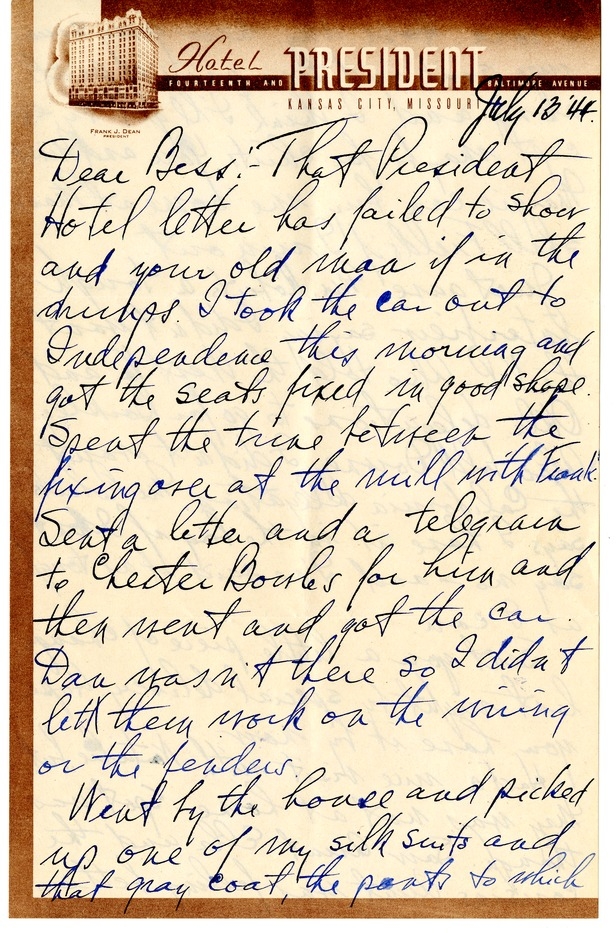 Hotel PRESIDENT
FOURTEENTH AND BALTIMORE AVENUE
KANSAS CITY, MISSOURI
FRANK J. DEAN
PRESIDENT
July 13 '44.
Dear Bess:- That President
Hotel letter has failed to show
and your old man if in the
dumps. I took the car out to
Independence this morning and
got the seats fixed in good shape.
Spent the time between the
fixing over at the mill with Frank.
Sent a letter and a telegram
to Chester Bowles for him and
then went and got the car.
Dan wasn't there so I didn't
let them work on the wiring
or the fenders.
Went by the house and picked
up one of my silk suits and
that gray coat, the pants to which